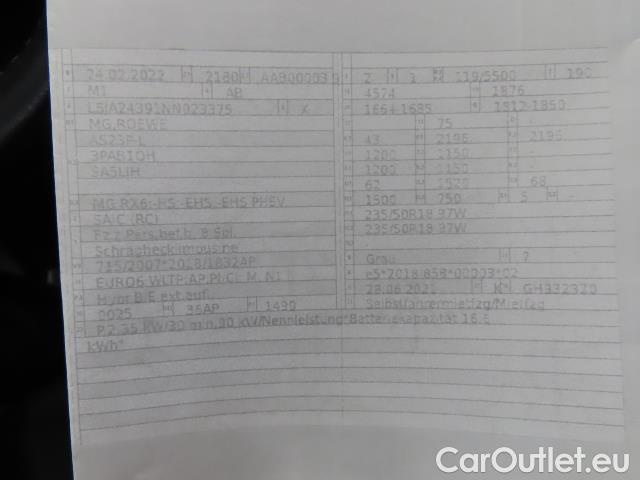 24.02.2022 2180 AAB00003 9
M1 AB
LSJA24391NN023375 X
MG,ROEWE
AS23P-L
3PAB1QH
SA5LIH
MG RX6;-HS;-EHS;-EHS PHEV
SAIC (RC)
Fz.z.Pers.bef.b. 8 Spl.
Schrägheckimousine
715/2007*2018/1832AP
EURO6 WLTP;AP,PI/CI, M, N1
Hybr.B/E ext.auf.
0025 36AP 1490
2 1 119/5500 190
4574 1876
1664-1685 1812-1850
- 75 -
43 2196 2196
1200 1150 -
1200 1150 -
62 1520 68
1500 750 5 -
235/50R18 97W
235/50R18 97W
-
Grau 7
e5*2018/858*00003*02
28.06.2021 K GH932320
Selbstfahrermietfzg/Mietfzg
P.2:35 KW/30 min,90 kW/Nennleistung*Batteriekapazität 16.6
kWh*
CarOutlet.eu